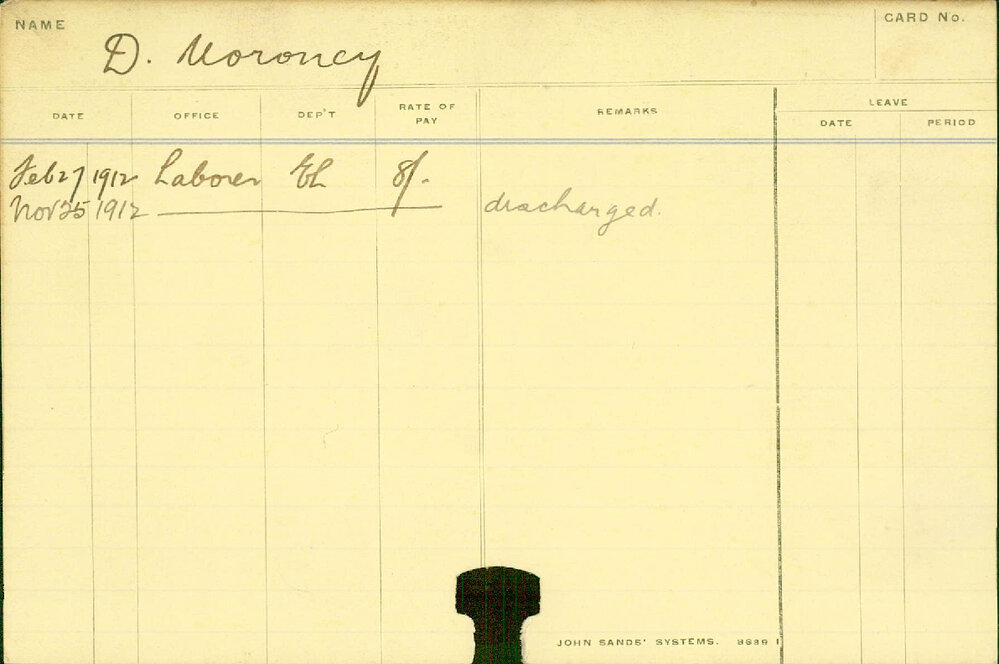 NAME
D. Moroney
CARD No.
DATE OFFICE DEP'T RATE OF PAY REMARKS LEAVE
DATE PERIOD
Feb 27 1912 Laborer EL 8/-
Nov 25 1912 discharged.
JOHN SANDS' SYSTEMS.